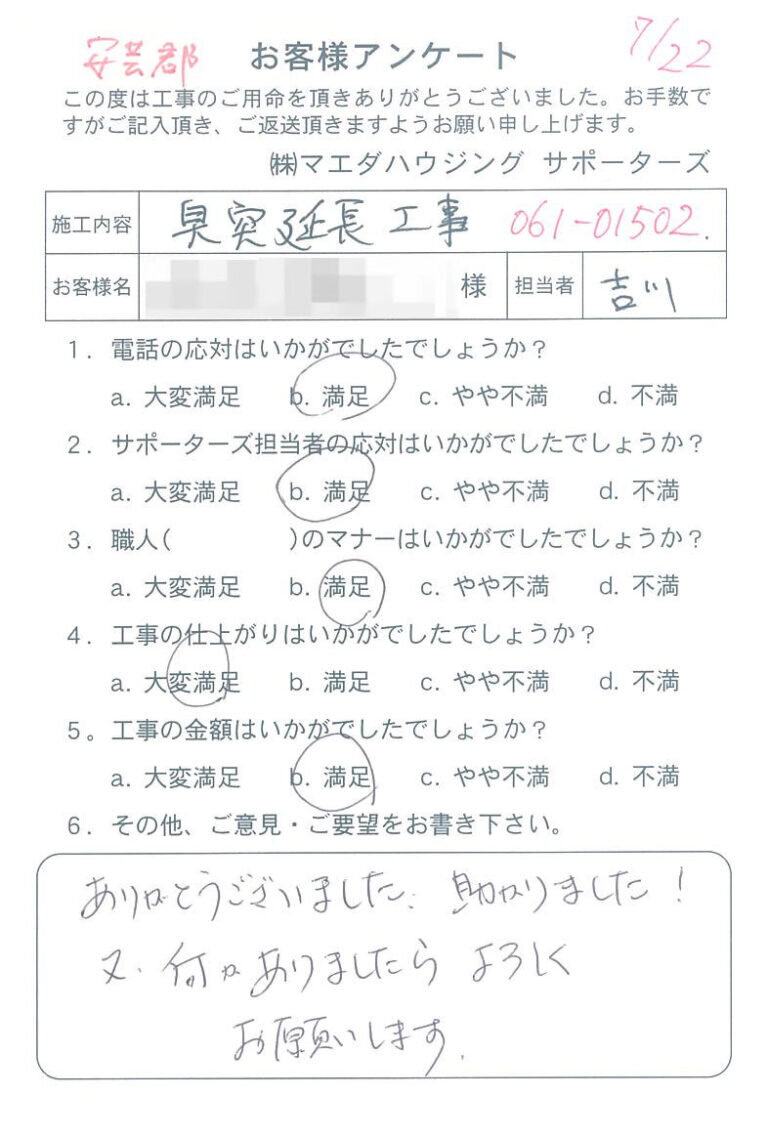 安芸郡 お客様アンケート 7/22
この度は工事のご用命を頂きありがとうございました。お手数で
すがご記入頂き、ご返送頂きますようお願い申し上げます。
㈱マエダハウジング サポーターズ
施工内容 臭突延長工事 061-01502.
お客様名 様 担当者 吉川
1. 電話の応対はいかがでしたでしょうか?
a. 大変満足 b. 満足 c. やや不満 d. 不満
2. サポーターズ担当者の応対はいかがでしたでしょうか?
a. 大変満足 b. 満足 c. やや不満 d. 不満
3. 職人( )のマナーはいかがでしたでしょうか?
a. 大変満足 b. 満足 c. やや不満 d. 不満
4. 工事の仕上がりはいかがでしたでしょうか?
a. 大変満足 b. 満足 c. やや不満 d. 不満
5。工事の金額はいかがでしたでしょうか?
a. 大変満足 b. 満足 c. やや不満 d. 不満
6. その他、ご意見・ご要望をお書き下さい。
ありがとうございました、助かりました!
又、何かありましたら よろしく
お願いします.